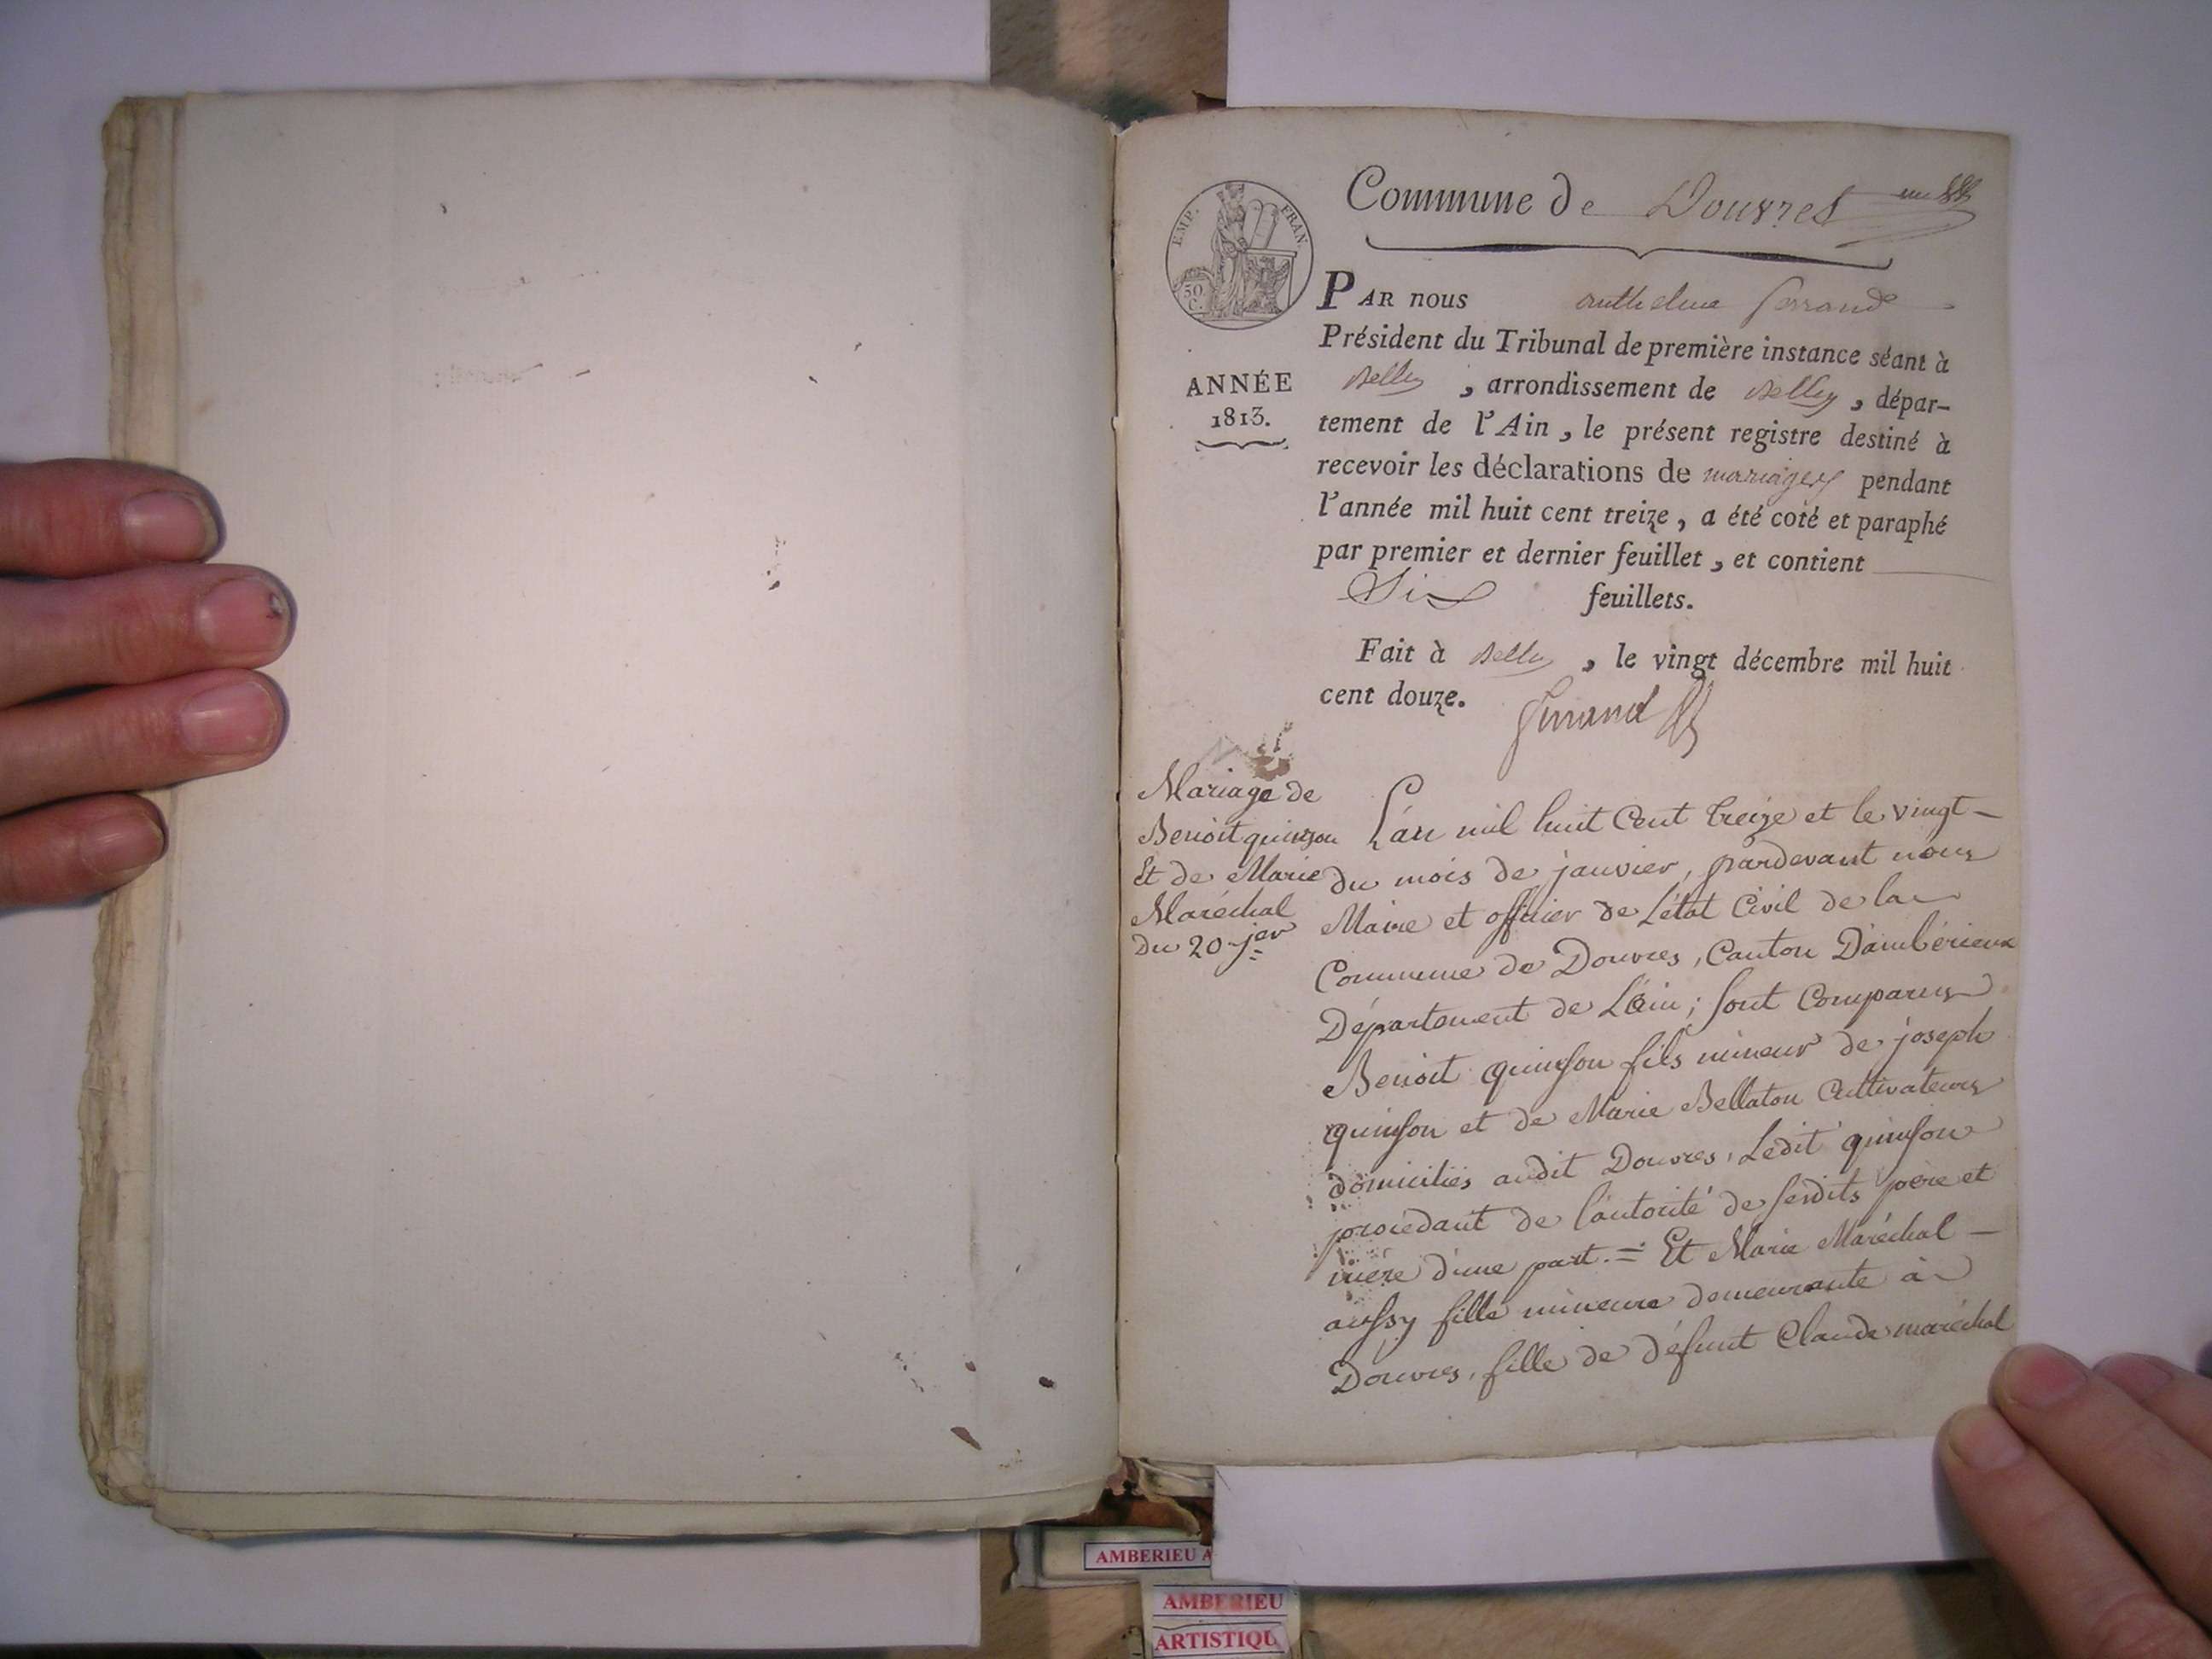 Commune de Douvres
EMP. FRAN.
50
C.
PAR nous anthelme ferrand
Président du Tribunal de première instance séant à
Belley, arrondissement de Belley, dépar-
tement de l'Ain, le présent registre destiné à
recevoir les déclarations de mariages pendant
l'année mil huit cent treize, a été coté et paraphé
par premier et dernier feuillet, et contient
Six feuillets.
Fait à Belley, le vingt décembre mil huit
cent douze.
ferrand
ANNÉE
1813.
Mariage de
Benoit quinson
Et de Marie
Maréchal
Du 20 jer
L'an mil huit Cent treize et le vingt -
du mois de janvier, pardevant nous
Maire et officier de L'état Civil de la
Commune de Douvres, Canton D'ambérieux
Département de L'ain; sont Comparus
Benoit quinson fils mineur de joseph
quinson et de Marie Bellaton Cultivateurs
domiciliés audit Douvres, Ledit quinson
procédant de l'autorité de sesdits père et
mère d'une part. = Et Marie Maréchal -
aussy fille mineure demeurante à
Douvres, fille de défunt Claude maréchal
AMBERIEU A
AMBERIEU
ARTISTIQU